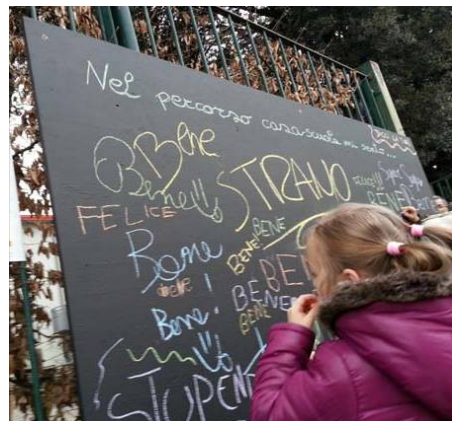 Nel percorso casa-scuola mi sento...
Bene
Bene
STRANO
FELICE
BENE
BENE
BENE
Bene
bene!
BENE
BENE
Bene!
STUPEN